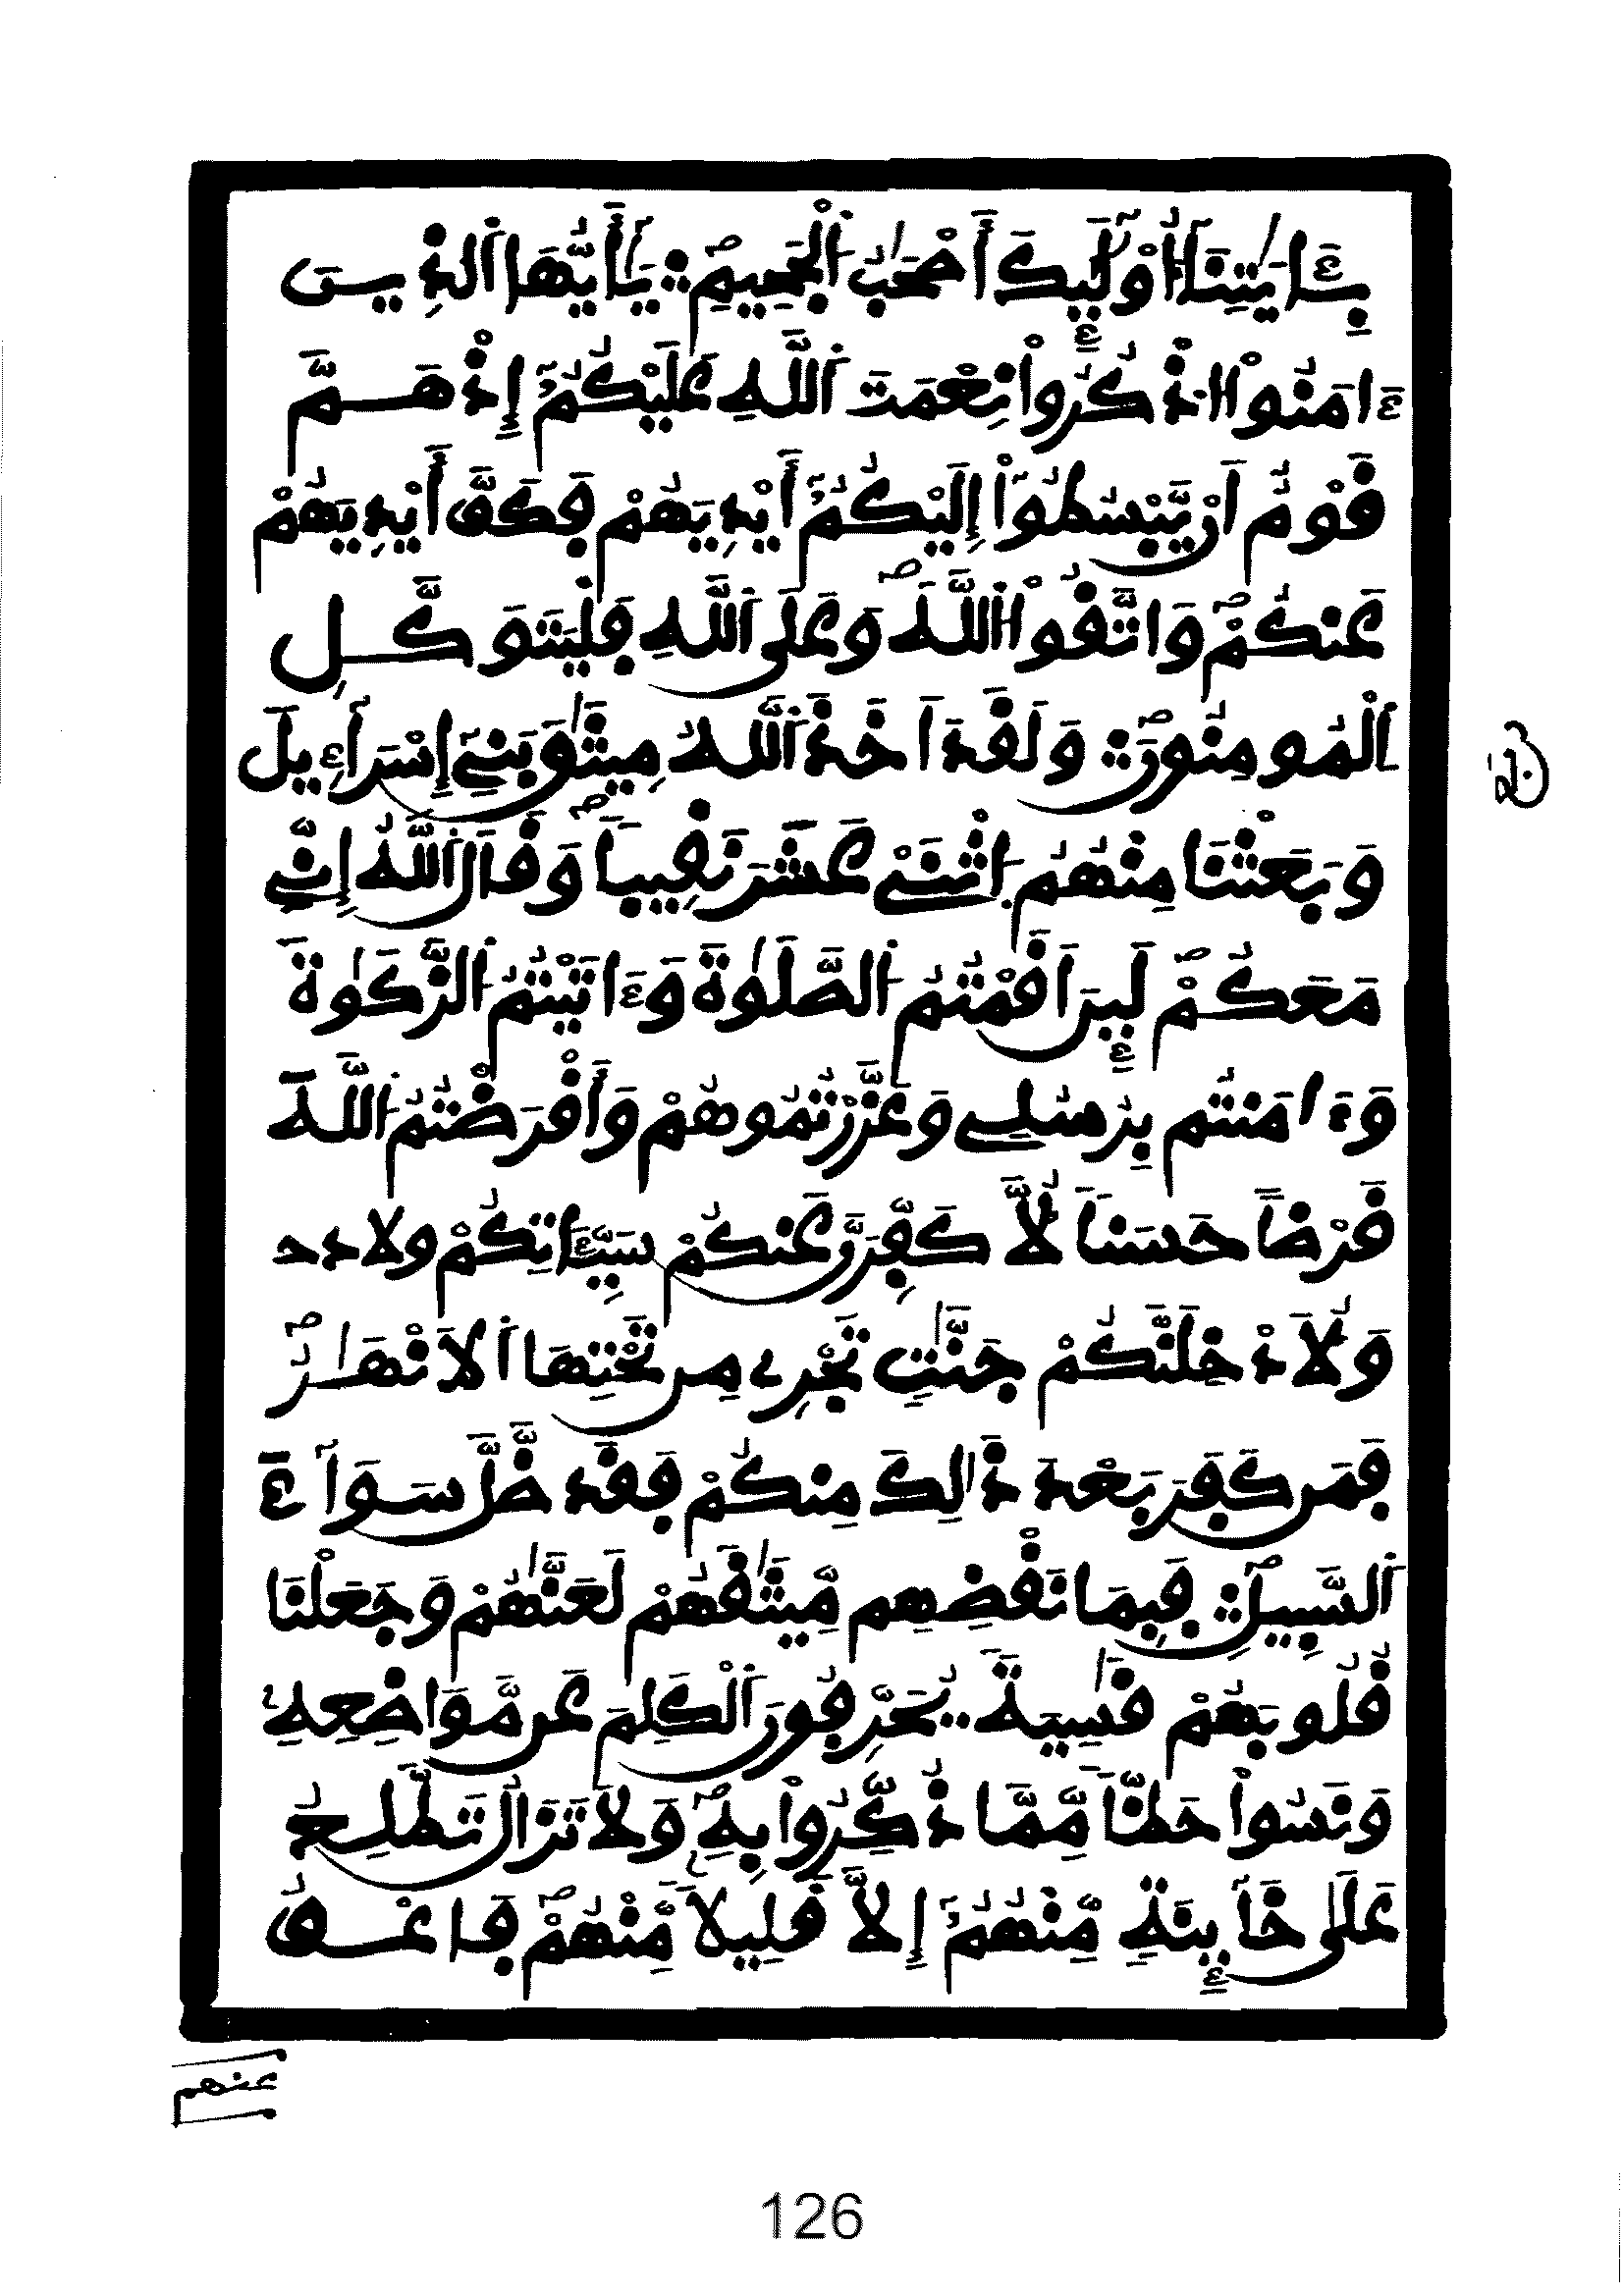 بِـَٔايَٰتِنَا أُوْلَٰٓئِكَ أَصْحَٰبُ اَلْجَحِيمِ يَٰٓأَيُّهَا اَلذِينَ
ءَامَنُواْ اُذْكُرُواْ نِعْمَتَ اَللَّهِ عَلَيْكُمُۥٓ إِذْ هَمَّ
قَوْمٌ اَنْ يَّبْسُطُوٓاْ إِلَيْكُمُۥٓ أَيْدِيَهُمْ فَكَفَّ أَيْدِيَهُمْ
عَنكُمْ وَاتَّقُواْ اُللَّهَ وَعَلَى اَللَّهِ فَلْيَتَوَكَّلِ
اِلْمُومِنُونَ وَلَقَدَ اَخَذَ اَللَّهُ مِيثَٰقَ بَنِےٓ إِسْرَآءِيلَ
وَبَعَثْنَا مِنْهُمُ اُثْنَےْ عَشَرَ نَقِيباً وَقَالَ اَللَّهُ إِنِّے
مَعَكُمْ لَئِنَ اَقَمْتُمُ اُلصَّلَوٰةَ وَءَاتَيْتُمُ اُلزَّكَوٰةَ
وَءَامَنتُم بِرُسُلِے وَعَزَّرْتُمُوهُمْ وَأَقْرَضْتُمُ اُللَّهَ
قَرْضاً حَسَناً لَّأُكَفِّرَنَّ عَنكُمْ سَيِّـَٔاتِكُمْ وَلَادْخ
وَلَأُدْخِلَنَّكُمْ جَنَّٰتٍ تَجْرِے مِن تَحْتِهَا اَلَانْهَٰرُ
فَمَن كَفَرَ بَعْدَ ذَٰلِكَ مِنكُمْ فَقَد ضَّلَّ سَوَآءَ
اَلسَّبِيلِ فَبِمَا نَقْضِهِم مِّيثَٰقَهُمْ لَعَنَّٰهُمْ وَجَعَلْنَا
قُلُوبَهُمْ قَٰسِيَةً يُحَرِّفُونَ اَلْكَلِمَ عَن مَّوَاضِعِهِۦ
وَنَسُواْ حَظّاً مِّمَّا ذُكِّرُواْ بِهِۦ وَلَا تَزَالُ تَطَّلِعُ
عَلَىٰ خَآئِنَةٍ مِّنْهُمُۥٓ إِلَّا قَلِيلًا مِّنْهُمْ فَاعْفُ
عنهم
126